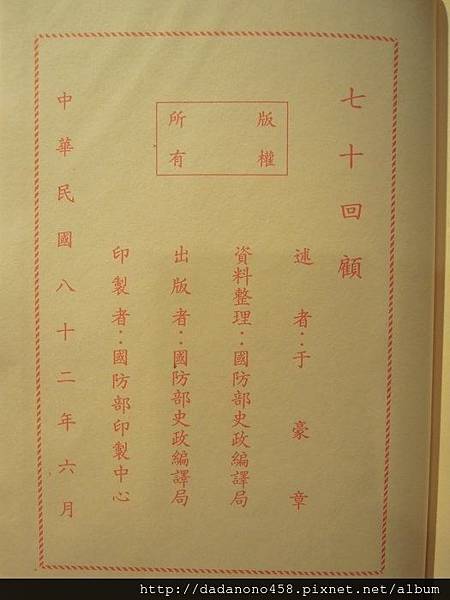 七十回顧
版權
所有
述者：于豪章
資料整理：國防部史政編譯局
出版者：國防部史政編譯局
印製者：國防部印製中心
中華民國八十二年六月
http://dadanono458.pixnet.net/album